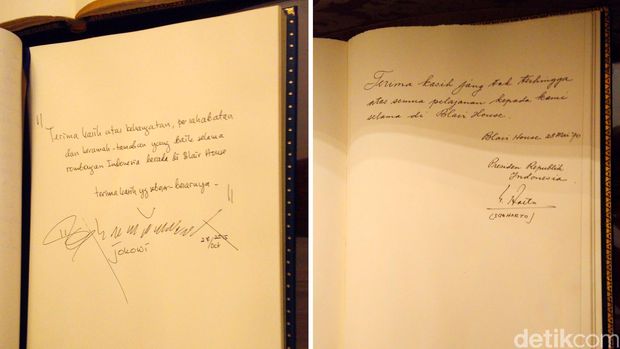 "Terima kasih atas kehangatan, persahabatan
dan keramah-tamahan yang baik selama
rombongan Indonesia berada di Blair House
terima kasih yg sebesar-besarnya -"
Jokowi
Oct
Terima kasih jang tak terhingga
atas semua pelajanan kepada kami
selama di Blair House.
Blair House 28 Mei '70
Presiden Republik
Indonesia
(SOEHARTO)
detikcom